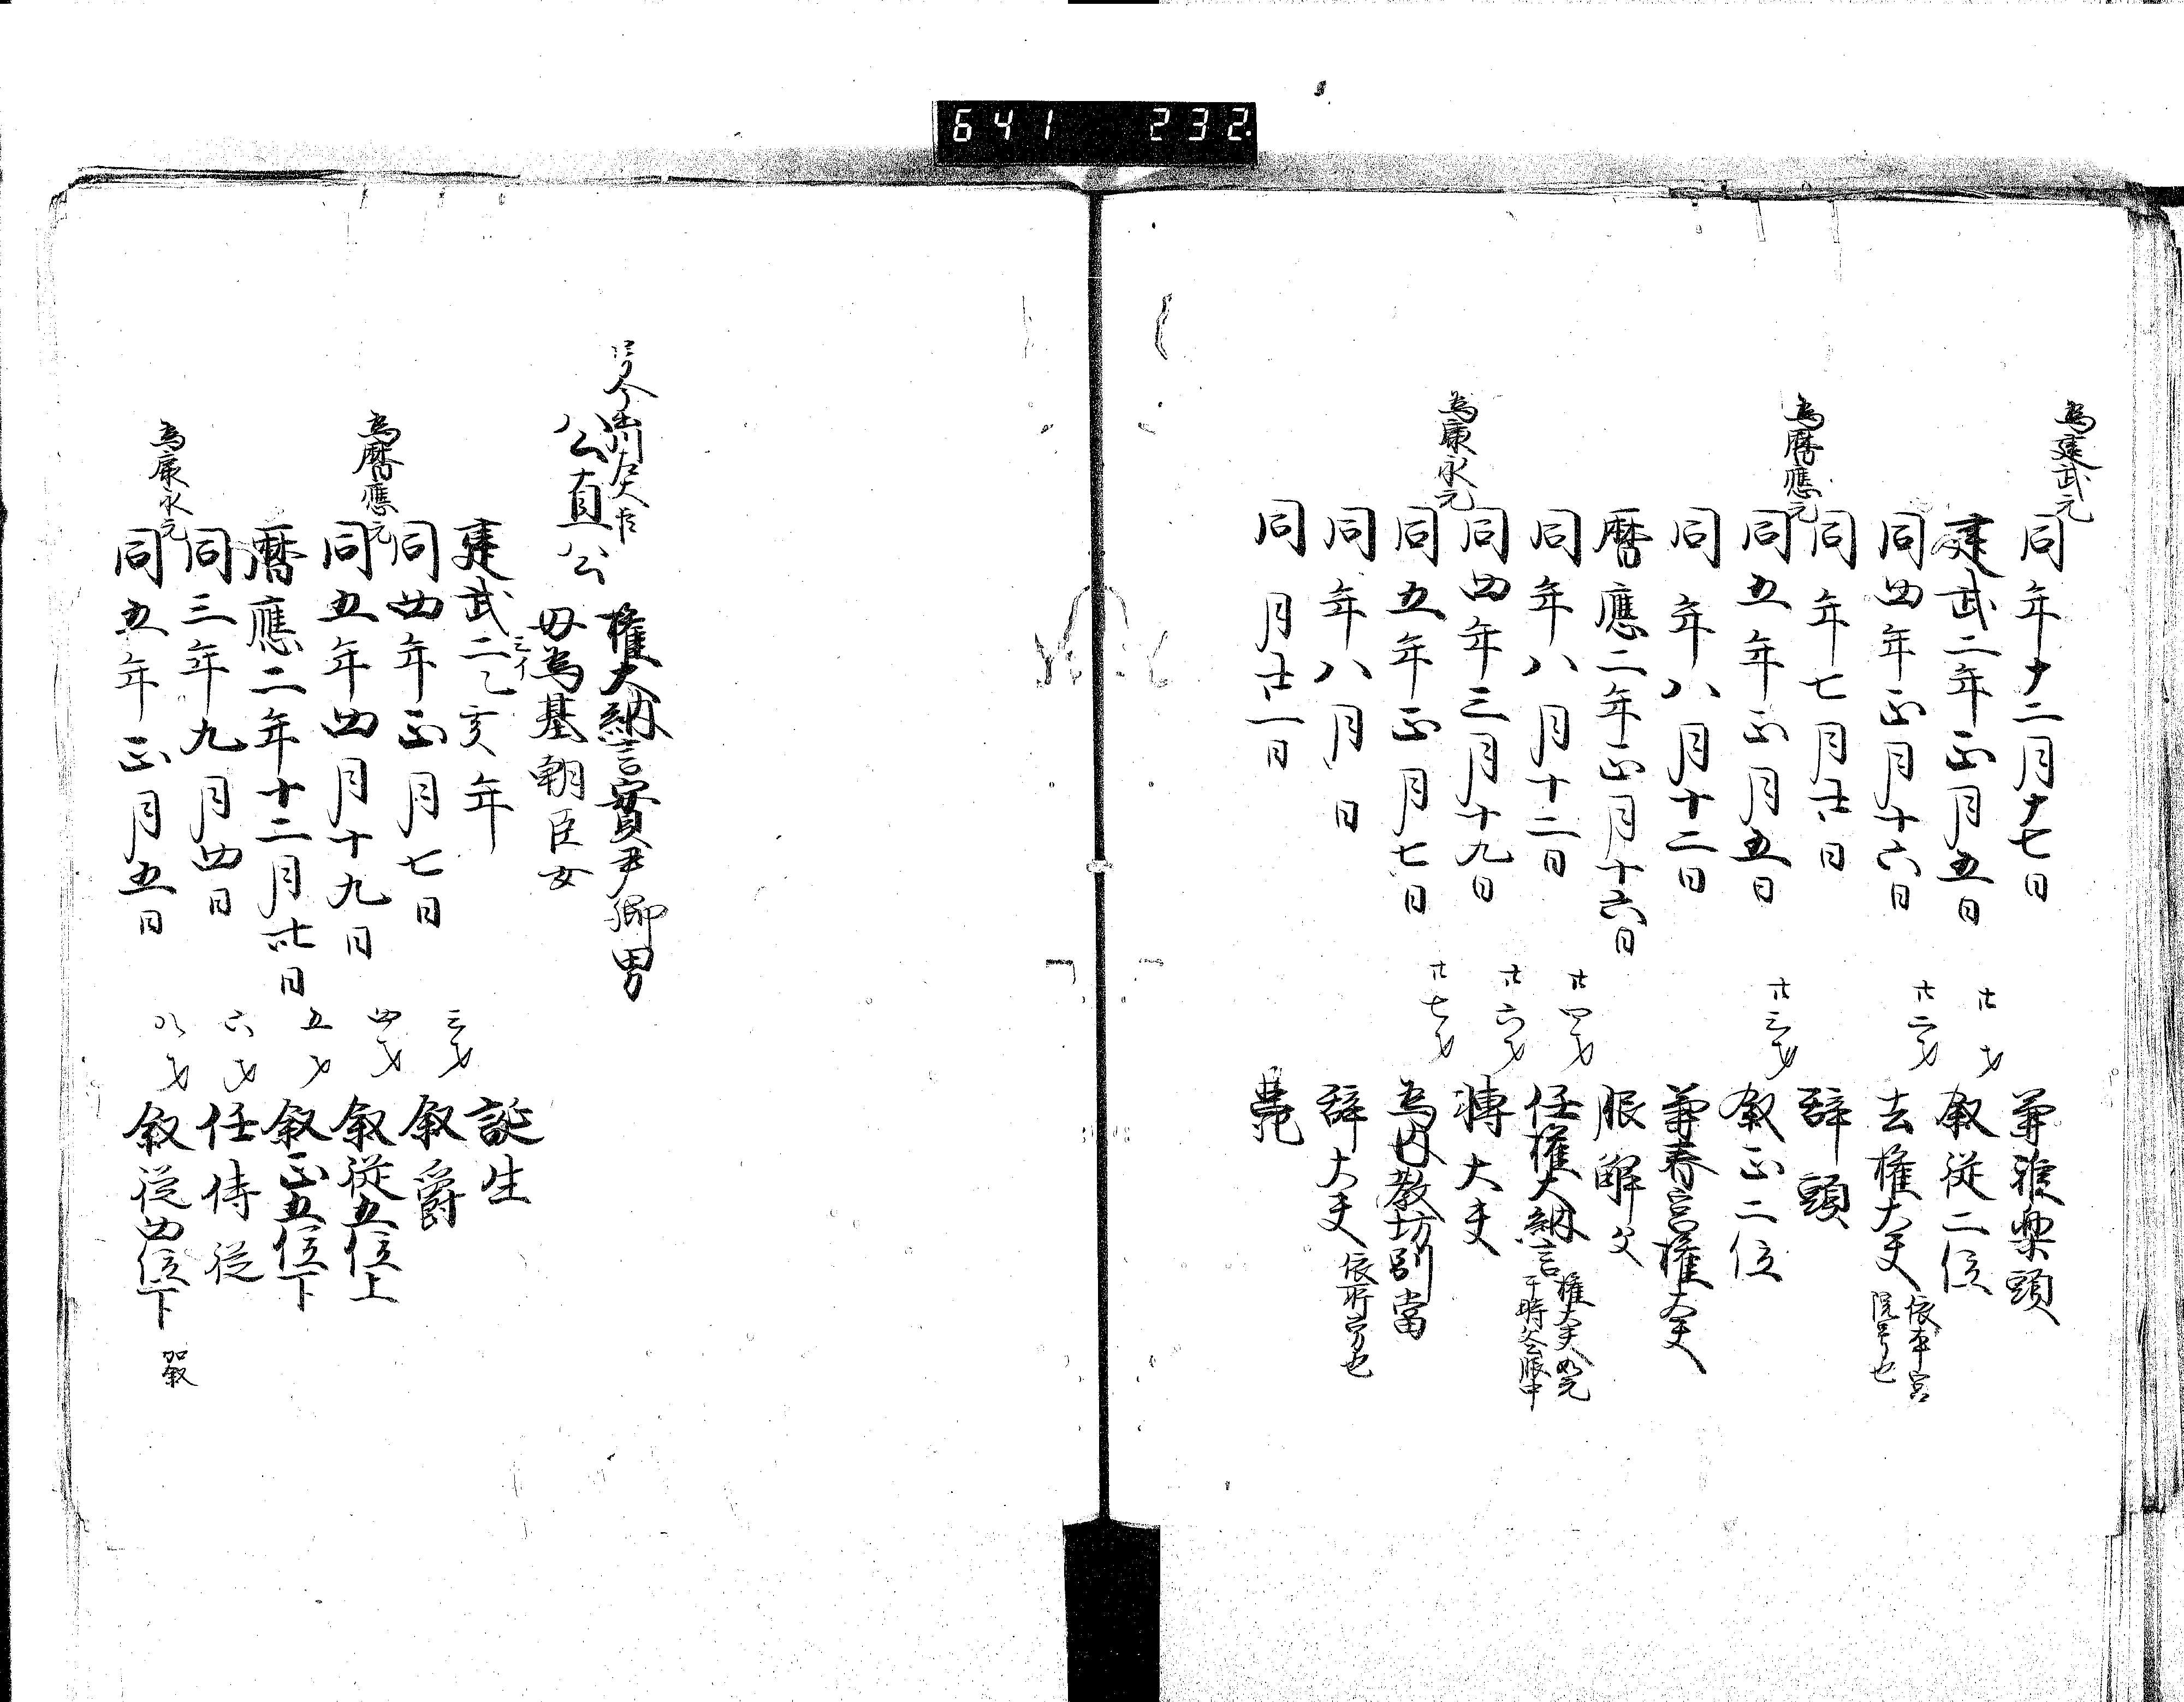 641 232
為建武元
同年十二月十七日 兼雅樂頭
建武二年正月五日 廿才 叙從二位
同四年正月十六日 廿二才 去權大夫 依本宮院号也
同年七月廿日 辞頭
為暦應元
同五年正月五日 廿三才 叙正二位
同年八月十二日 兼春宮權大夫
暦應二年正月十六日 服解父
同年八月十二日 廿四才 任權大納言 權大夫如元 于時父服中
同四年三月十九日 廿六才 轉大夫
為康永元
同五年正月七日 廿七才 為内教坊別當
同年八月日 辞大夫 依所労也
同月廿一日 薨
号今出川左大臣
公直公 權大納言實尹卿男
母為基朝臣女
建武二乙亥年 誕生
三イ
同四年正月七日 三才 叙爵
為暦應元
同五年四月十九日 四才 叙從五位上
暦應二年十二月廿日 五才 叙正五位下
同三年九月四日 六才 任侍從
為康永元
同五年正月五日 八才 叙從四位下 加叙